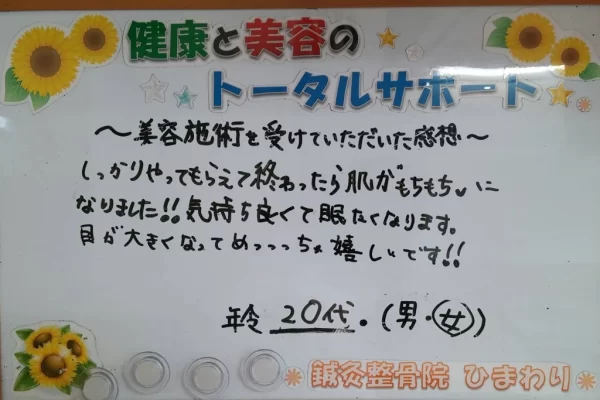 健康と美容の
トータルサポート
～美容施術を受けていただいた感想～
しっかりやってもらえて終わったら肌がもちもちに
なりました!!気持ち良くて眠たくなります。
目が大きくなってめっっっちゃ嬉しいです!!
年令 20代。(男・女)
鍼灸整骨院 ひまわり